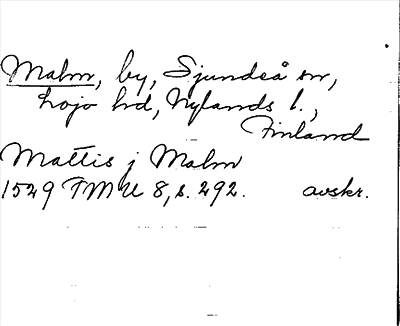 Malm, by, Sjundeå sn,
Lojo hd, Nylands l.,
Finland
Mattis j Malm
1549 FMU 8, s. 292. avskr.